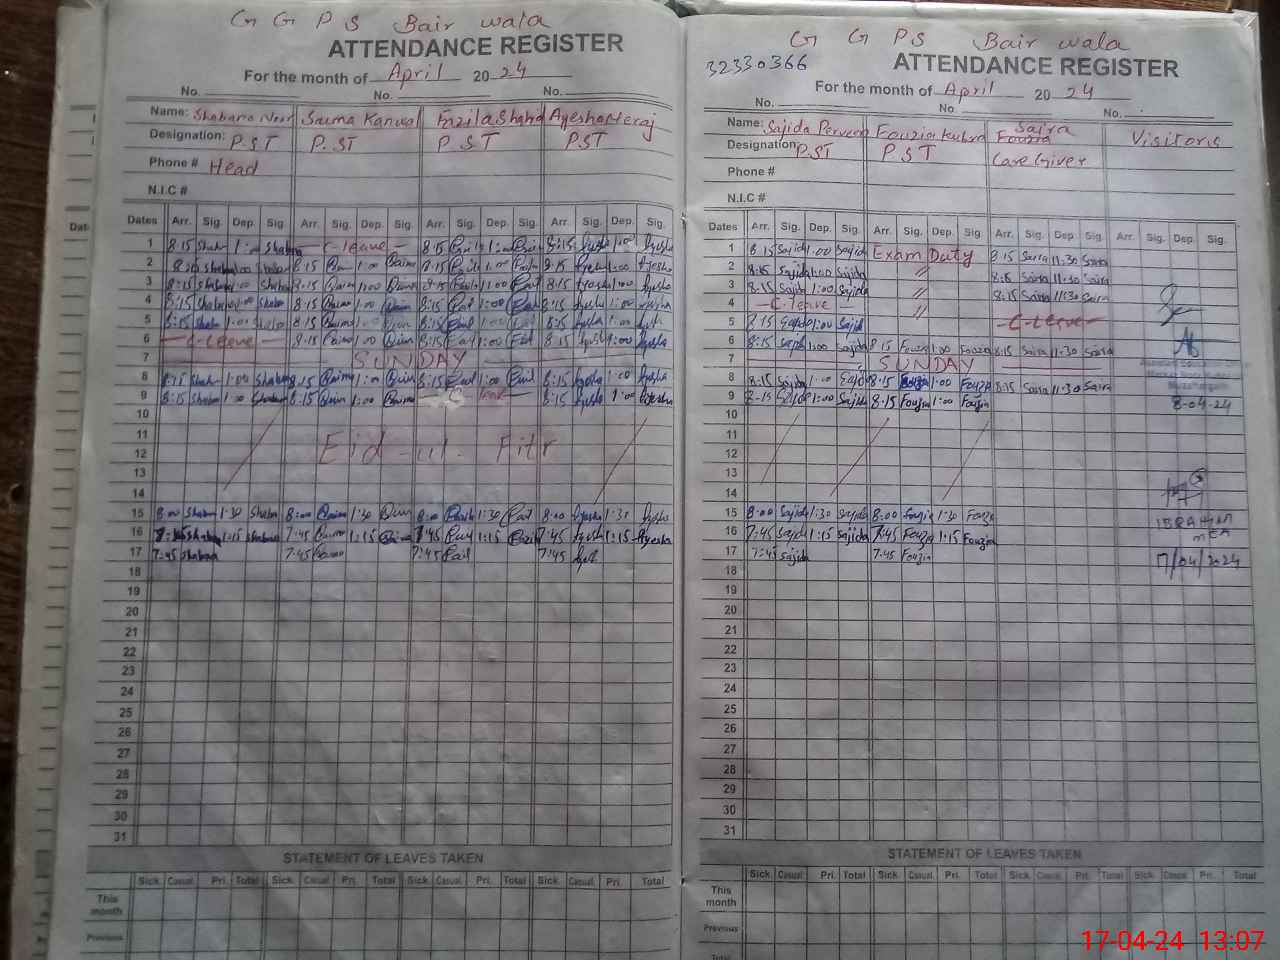 G G P S Bair wala
ATTENDANCE REGISTER
For the month of April 2024
No. No. No.
Name: Shabana Noor Saima Kanwal Fazila Shahd Ayesha Meraj
Designation: P.ST P.ST P.ST P.ST
Phone # Head
N.I.C #
Dates Arr. Sig. Dep. Sig. Arr. Sig. Dep. Sig. Arr. Sig. Dep. Sig. Arr. Sig. Dep. Sig.
1 8:15 Shaban 1:00 Shabana C-leave 8:15 1:00 8:15 Ayesha 1:00 Ayesha
2 8:15 Shaban 1:00 Shaban 8:15 1:00 8:15 1:00 8:15 Ayesha 1:00 Ayesha
3 8:15 Shabana 1:00 Shaban 8:15 1:00 8:15 1:00 8:15 Ayesha 1:00 Ayesha
4 8:15 Shabana 1:00 Shaban 8:15 1:00 8:15 1:00 8:15 Ayesha 1:00 Ayesha
5 8:15 Shaban 1:00 Shaban 8:15 1:00 8:15 1:00 8:15 Ayesha 1:00
6 C-leave 8:15 1:00 8:15 1:00 8:15 Ayesha 1:00 Ayesha
7 SUNDAY
8 8:15 Shaban 1:00 Shabana 8:15 1:00 8:15 1:00 8:15 Ayesha 1:00 Ayesha
9 8:15 Shabana 1:00 Shabana 8:15 1:00 8:15 Ayesha 1:00 Ayesha
10
11
12 Eid-ul-Fitr
13
14
15 8:00 Shaban 1:30 Shaban 8:00 1:30 8:00 1:30 8:00 Ayesha 1:30 Ayesha
16 7:45 Shabana 1:15 Shabana 7:45 1:15 7:45 1:15 7:45 Ayesha 1:15 Ayesha
17 7:45 Shabana 7:45 7:45 7:45
18
19
20
21
22
23
24
25
26
27
28
29
30
31
STATEMENT OF LEAVES TAKEN
Sick Casual Pri. Total Sick Casual Pri. Total Sick Casual Pri. Total Sick Casual Pri. Total
This month
Previous
G G P S Bair wala
32330366
ATTENDANCE REGISTER
For the month of April 2024
No. No. No.
Name: Sajida Perveen Fouzia Kushra Saira Fouzia Visitors
Designation: P.ST P S T Care Giver
Phone #
N.I.C #
Dates Arr. Sig. Dep. Sig. Arr. Sig. Dep. Sig. Arr. Sig. Dep. Sig. Arr. Sig. Dep. Sig.
1 8:15 Sajida 1:00 Sajida Exam Duty 8:15 Saira 11:30 Saira
2 8:15 Sajida 1:00 Sajida // 8:15 Saira 11:30 Saira
3 8:15 Sajida 1:00 Sajida // 8:15 Saira 11:30 Saira
4 C-leave //
5 8:15 Sajida 1:00 Sajid C-leave
6 8:15 Sajida 1:00 Sajida 8:15 Fouzia 1:00 Fouzia 8:15 Saira 11:30 Saira
7 SUNDAY
8 8:15 Sajida 1:00 Sajida 8:15 Fouzia 1:00 Fouzia 8:15 Saira 11:30 Saira
9 8:15 Sajida 1:00 Sajida 8:15 Fouzia 1:00 Fouzia 8-04-24
10
11
12
13
14
15 8:00 Sajida 1:30 Sajida 8:00 Fouzia 1:30 Fouzia IBRAHIM
16 7:45 Sajida 1:15 Sajida 7:45 Fouzia 1:15 Fouzia MEA
17 7:45 Sajida 7:45 Fouzia 17/04/2024
18
19
20
21
22
23
24
25
26
27
28
29
30
31
STATEMENT OF LEAVES TAKEN
Sick Casual Pri. Total Sick Casual Pri. Total Sick Casual Pri. Total Sick Casual Pri. Total
This month
Previous
Total
17-04-24 13:07